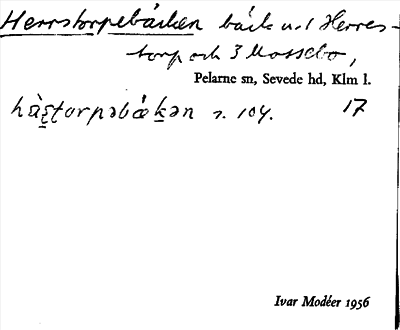 Herrstorpebäcken bäck v. 1 Herres-
torp och 3 Mossebo,
Pelarne sn, Sevede hd, Klm l.
17
s. 104.
Ivar Modéer 1956